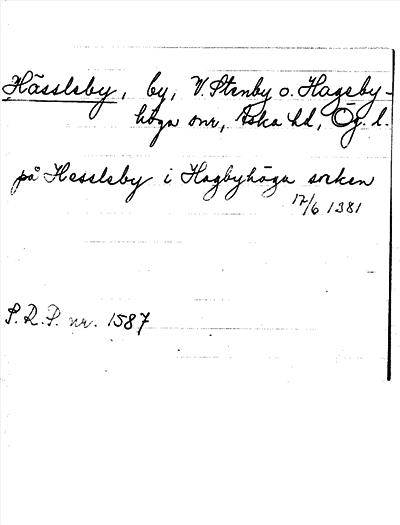 Hässleby, by, V. Stenby o. Hageby-
höga snr, Aska hd, Ög. l.
på Hessleby i Hagbyhögu soken
17/6 1381
S.R.P. nr. 1587